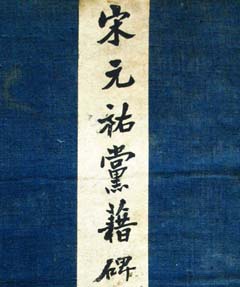 宋元祐黨藉碑